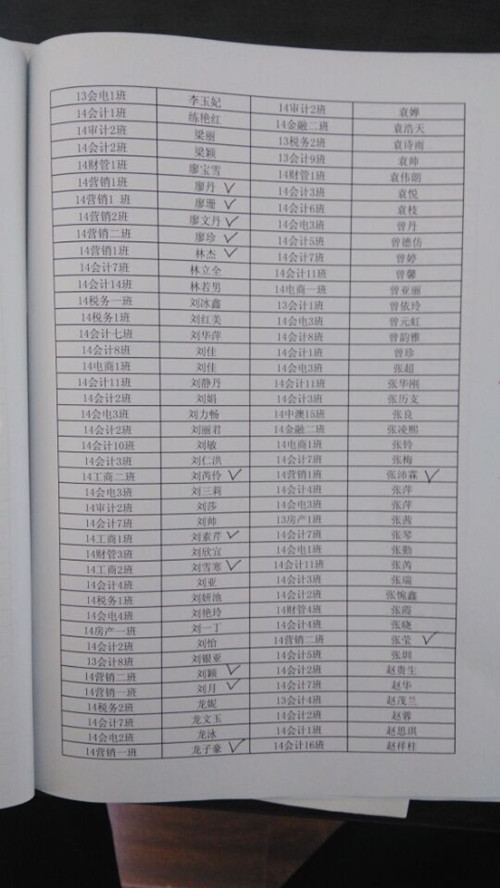 13会电1班 李玉妃 14审计2班 袁婵
14会计1班 练艳红 14金融二班 袁浩天
14审计2班 梁丽 13税务2班 袁诗雨
14会计2班 梁颖 13会计9班 袁帅
14财管1班 廖宝雪 14财管1班 袁伟朗
14营销1班 廖丹 14会计3班 袁悦
14营销1 班 廖珊 14会计6班 袁枝
14营销2班 廖文丹 14会电3班 曾丹
14营销二班 廖珍 14会计5班 曾德仿
14营销1班 林杰 14会计7班 曾婷
14会计7班 林立全 14会计11班 曾馨
14会计14班 林若男 14电商一班 曾亚丽
14税务一班 刘冰鑫 13会计1班 曾依玲
14税务1班 刘红美 14会电3班 曾元虹
14会计七班 刘华萍 14会计8班 曾韵雅
14会计8班 刘佳 14会计1班 曾珍
14电商1班 刘佳 14会电3班 张超
14会计11班 刘静丹 14会计11班 张华刚
14会计2班 刘娟 14会计3班 张历支
14会电3班 刘力畅 14中澳15班 张良
14会计2班 刘丽君 14金融二班 张凌熙
14会计10班 刘敏 14电商1班 张铃
14会计3班 刘仁洪 14会计7班 张梅
14工商二班 刘芮伶 14营销1班 张沛霖
14会电3班 刘三莉 14会计4班 张萍
14审计2班 刘莎 14会电3班 张萍
14会计7班 刘帅 13房产1班 张茜
14工商1班 刘素芹 14会计7班 张琴
14财管3班 刘欣宜 14会电1班 张勤
14工商2班 刘雪寒 14会计11班 张芮
14会计4班 刘亚 14会计3班 张瑞
14税务1班 刘妍池 14会计2班 张惋鑫
14会电4班 刘艳玲 14财管4班 张霞
14房产一班 刘一丁 14会计4班 张晓
14会计2班 刘怡 14营销二班 张莹
13会计8班 刘银亚 14会计5班 张圳
14营销二班 刘颖 14会计2班 赵贵生
14营销一班 刘月 14会计7班 赵华
14税务2班 龙妮 13会计4班 赵茂兰
14会计7班 龙文玉 14会计2班 赵蓉
14会电2班 龙泳 14会计1班 赵思琪
14营销一班 龙子豪 14会计16班 赵祥柱